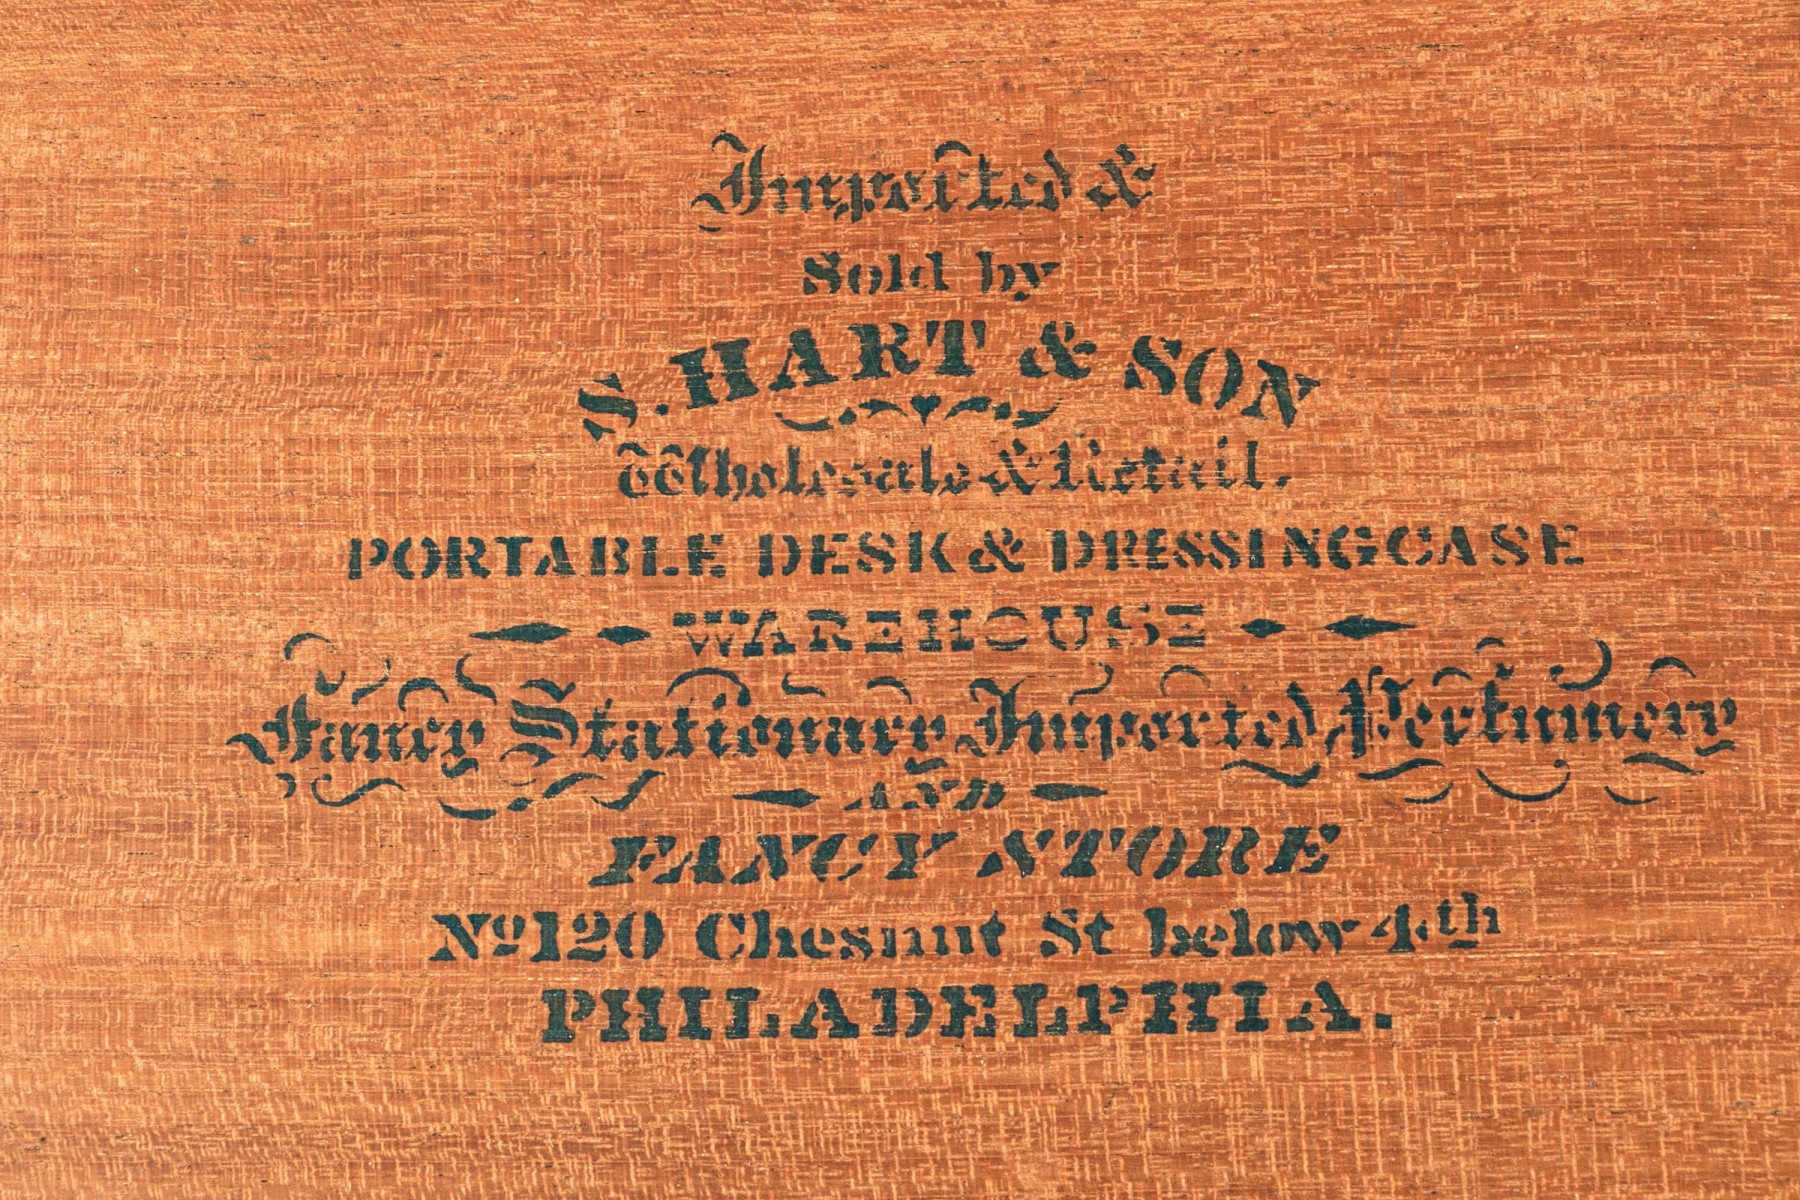 Imported &
Sold by
S. HART & SON
Wholesale & Retail.
PORTABLE DESK & DRESSING CASE
WAREHOUSE
Fancy Stationary Imported Perfumery
AND
FANCY STORE
No 120 Chesnut St below 4th
PHILADELPHIA.